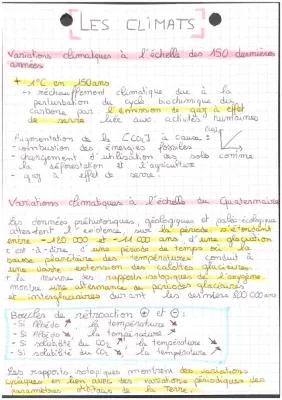 LES CLIMATS
Variations climatiques à l'échelle des 150 dernières
années
+ 1°C en 150 ans
→ réchauffement climatique due à la
perturbation du cycle biochimique du
carbone par l'émission de gaz à effet
de serre liée aux activités humaines
Augmentation de la [CO2] à cause :
- combustion des énergies fossiles
- changement d'utilisation des sols comme
la déforestation et l'agriculture
- gaz à effet de serre.
Variations climatiques à l'échelle du Quaternaire
Les données préhistoriques, géologiques et paléo-écologiques
attestent l'existence, sur la période s'étendant
entre -120 000 et -11 000 ans, d'une glaciation
c'est-à-dire d'une période de temps où la
baisse planétaire des températures conduit à
une vaste extension des calottes glaciaires.
la mesure des rapports isotopiques de l'oxygène
montre une alternance de périodes glaciaires
et interglaciaires durant les dernières 800 000 ans
Boucles de rétroaction ⊕ et ⊖ :
- Si albédo ↗, la température ↘
- Si albédo ↘, la température ↗
- Si solubilité du CO2 ↗, la température ↘
- Si solubilité du CO2 ↘, la température ↗
Les rapports isotopiques montrent des variations
cycliques en lien avec des variations périodiques des
paramètres orbitaux de la Terre.